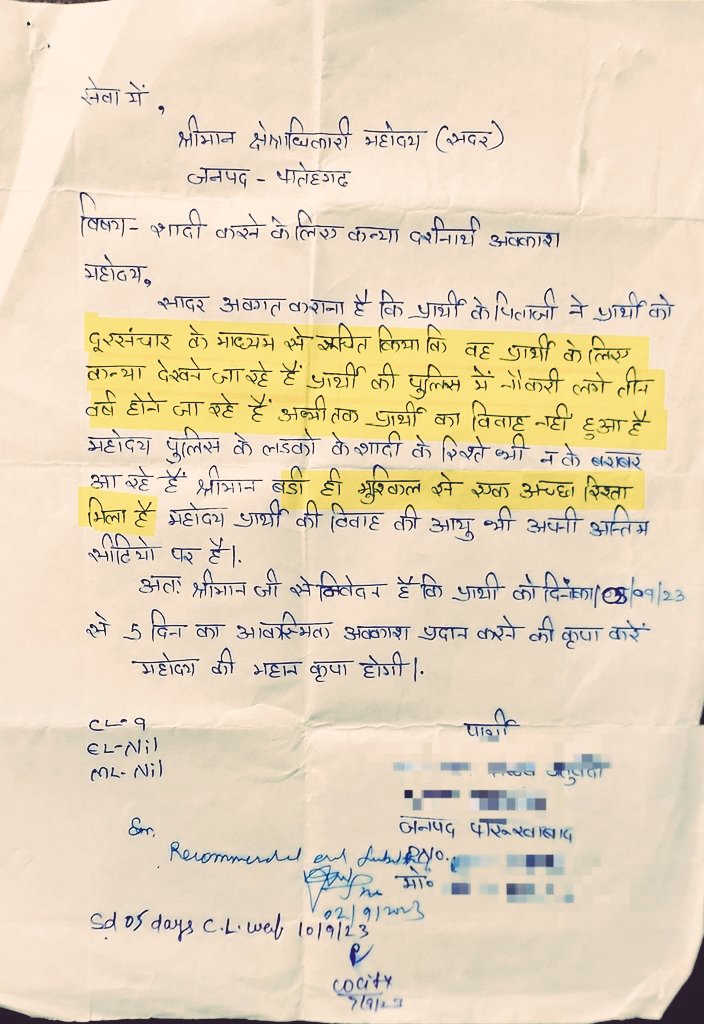 सेवा में,
श्रीमान क्षेत्राधिकारी महोदय (सदर)
जनपद - फतेहगढ
विषय- शादी करने के लिए कन्या दर्शनार्थ अवकाश
महोदय,
सादर अवगत कराना है कि प्रार्थी के पिताजी ने प्रार्थी को
दूरसंचार के माध्यम से सूचित किया कि वह प्रार्थी के लिए
कन्या देखने जा रहे हैं प्रार्थी की पुलिस में नौकरी लगे तीन
वर्ष होने जा रहे हैं अभी तक प्रार्थी का विवाह नहीं हुआ है
महोदय पुलिस के लडको के शादी के रिश्ते भी न के बराबर
आ रहे हैं श्रीमान बडी ही मुश्किल से एक अच्छा रिश्ता
मिला है महोदय प्रार्थी की विवाह की आयु भी अपनी अन्तिम
सीढियो पर है।.
अतः श्रीमान जी से निवेदन है कि प्रार्थी को दिनांक /09/23
से 5 दिन का आकस्मिक अवकाश प्रदान करने की कृपा करें
महोदय की महान कृपा होगी।.
CL-9
EL-Nil
ML-Nil
प्रार्थी
जनपद फरूखाबाद
PNo.
मो०
Recommended and
02/9/2023
Sd 05 days C.L. wef 10/9/23
CO City